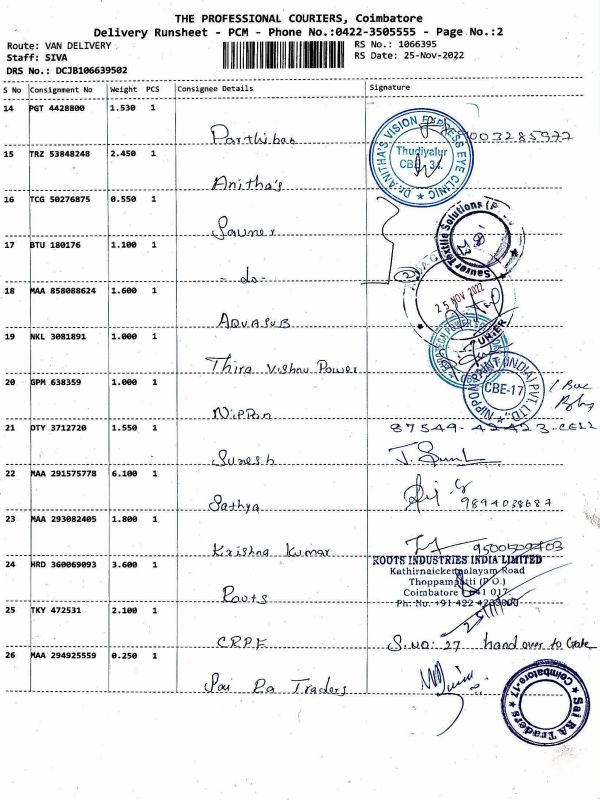 THE PROFESSIONAL COURIERS, Coimbatore
Delivery Runsheet - PCM - Phone No.:0422-3505555 - Page No.:2
Route: VAN DELIVERY
Staff: SIVA
DRS No.: DCJB106639502
RS No.: 1066395
RS Date: 25-Nov-2022
S No Consignment No Weight PCS Consignee Details Signature
14 PGT 4428800 1.530 1
Parthiban
15 TRZ 53848248 2.450 1
Anitha's
Dr. ANITHA'S VISION EXPRESS EYE CLINIC
Thudiyalur
CBE - 34.
16 TCG 50276875 0.550 1
Saurer
Saurer Textile Solutions (P
17 BTU 180176 1.100 1
- do -
(2)
18 MAA 858088624 1.600 1
AQUASUB
25 NOV 2022
19 NKL 3081891 1.000 1
Thira Vishnu Power
20 GPM 638359 1.000 1
Nippon
NIPPON PAINT (INDIA) PVT. LTD.
CBE-17
21 OTY 3712720 1.550 1
87549-42423-CELL
Suresh
22 MAA 291575778 6.100 1
Sathya
9894038687
23 MAA 293082405 1.800 1
Krishna Kumar
24 HRD 360069093 3.600 1
Roots
ROOTS INDUSTRIES INDIA LIMITED
Kathirnaickenpalayam Road
Thoppampatti (P.O.)
Coimbatore - 641 017.
Ph: No. +91 422 4233000
25 TKY 472531 2.100 1
CRPF
S.NO: 27 hand over to Gate
26 MAA 294925559 0.250 1
Sai Ra Traders
Sai RA Traders
Coimbatore-17